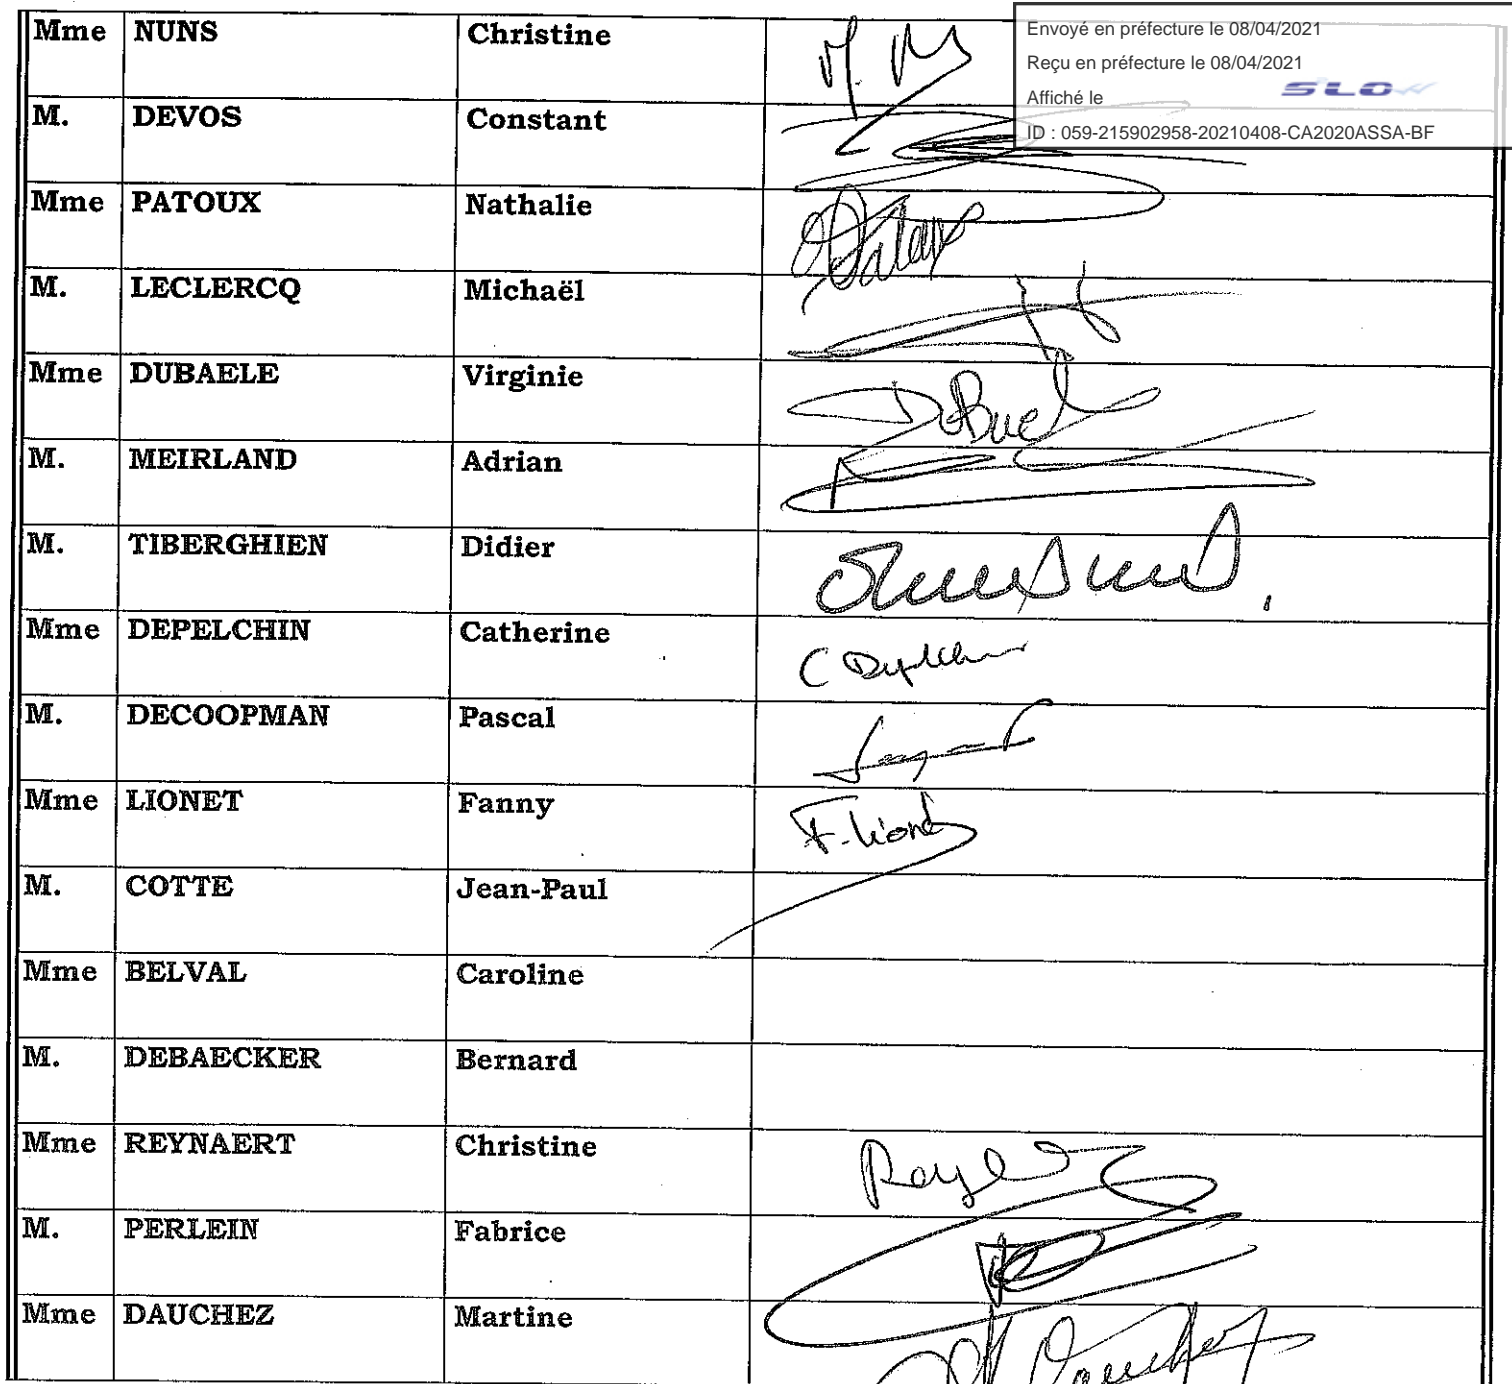 Envoyé en préfecture le 08/04/2021
Reçu en préfecture le 08/04/2021
Affiché le
SLOW
ID : 059-215902958-20210408-CA2020ASSA-BF
Mme NUNS Christine
M. DEVOS Constant
Mme PATOUX Nathalie
M. LECLERCQ Michaël
Mme DUBAELE Virginie
M. MEIRLAND Adrian
M. TIBERGHIEN Didier
Mme DEPELCHIN Catherine
M. DECOOPMAN Pascal
Mme LIONET Fanny F. Lionet
M. COTTE Jean-Paul
Mme BELVAL Caroline
M. DEBAECKER Bernard
Mme REYNAERT Christine
M. PERLEIN Fabrice
Mme DAUCHEZ Martine